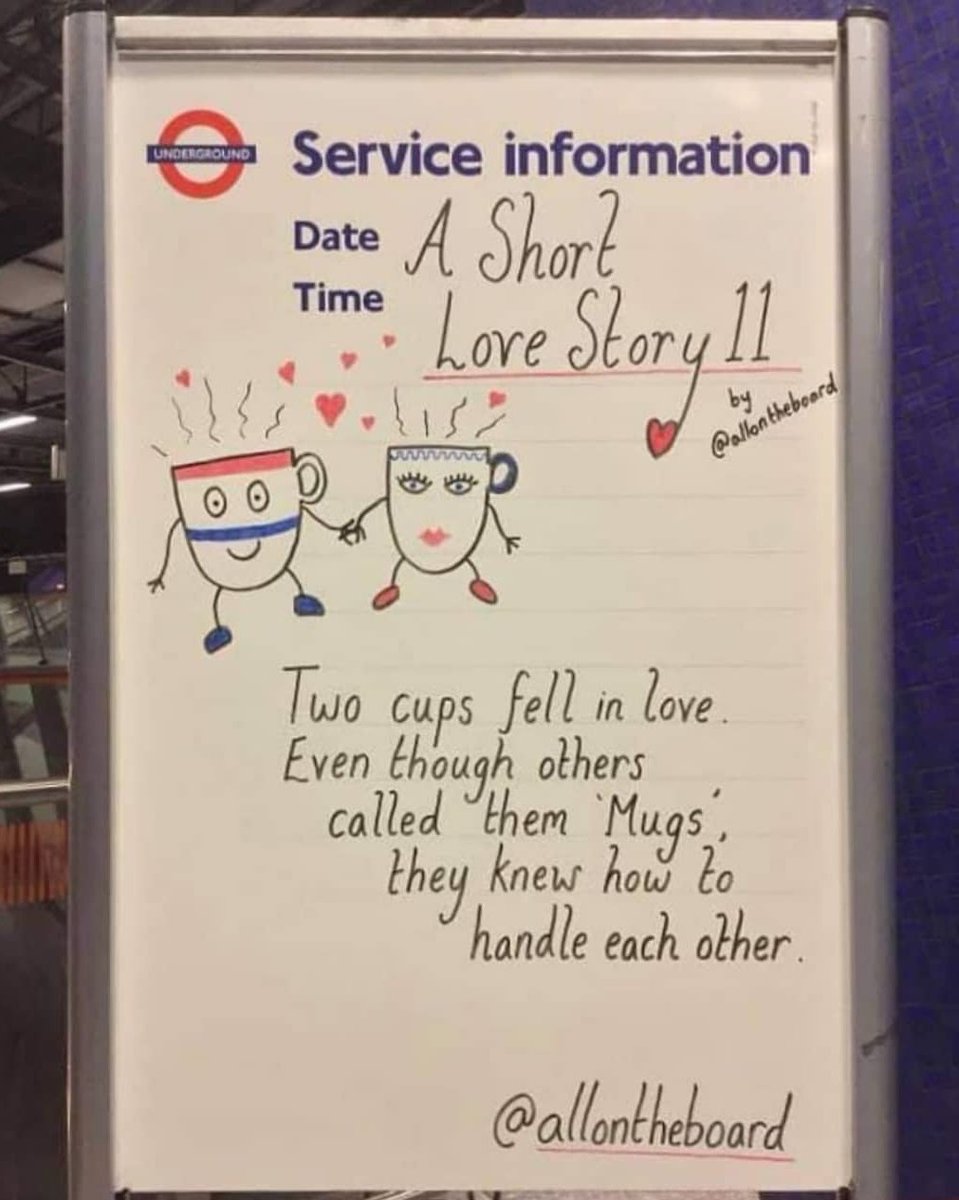 UNDERGROUND
Service information
Date A Short
Time Love Story 11
by
@allontheboard
Two cups fell in love.
Even though others
called them 'Mugs',
they knew how to
handle each other.
@allontheboard